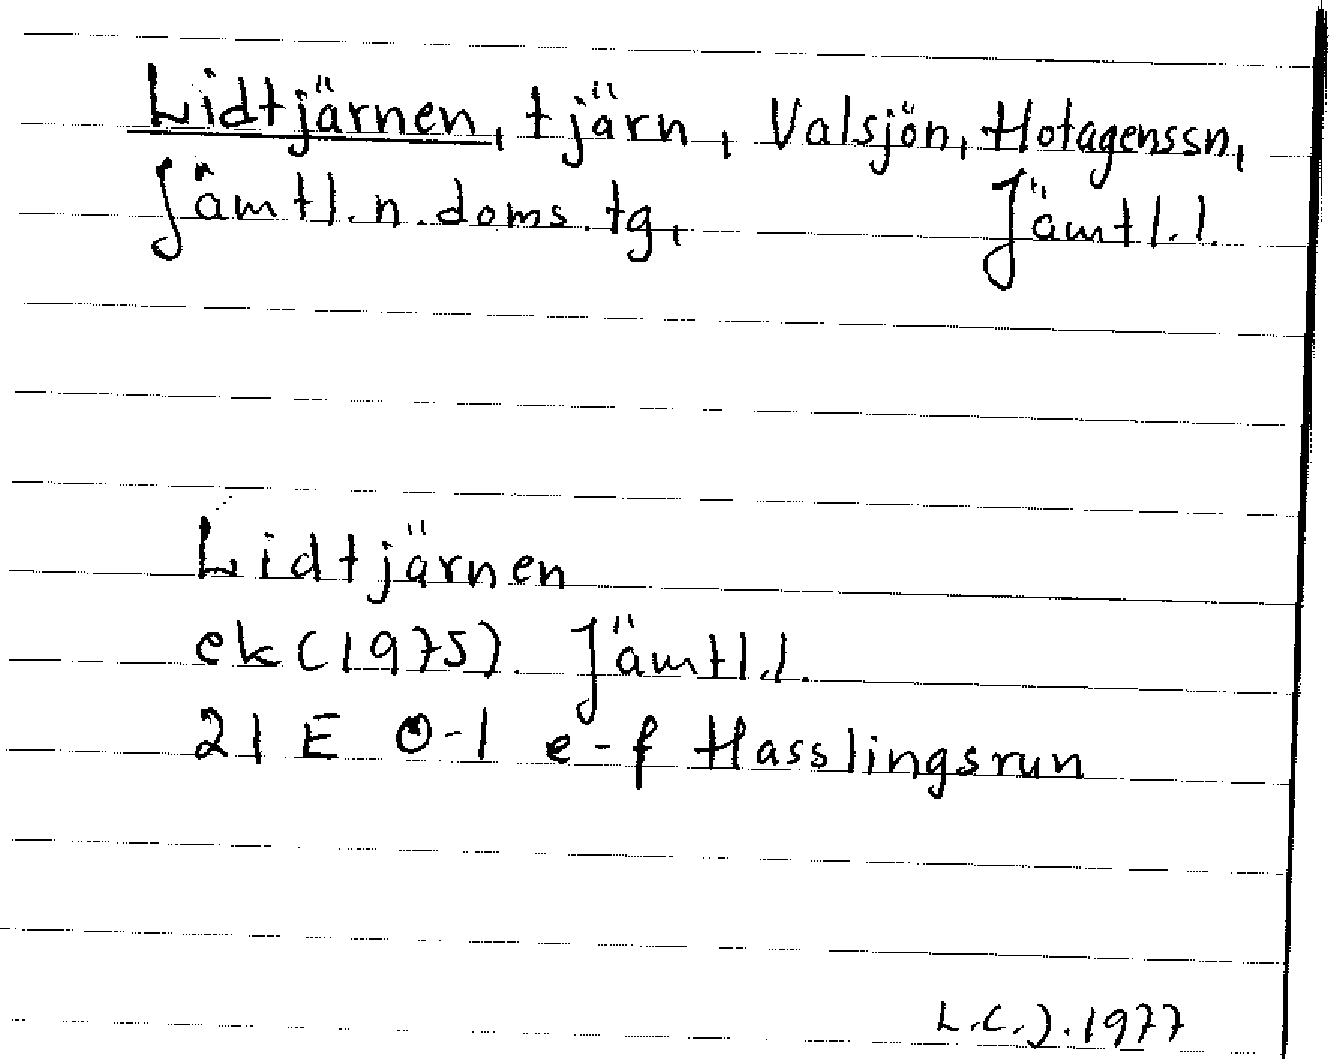 Lidtjärnen, tjärn, Valsjön, Hotagenssn,
Jämtl.n.doms.tg, Jämtl.l.
Lidtjärnen
ek(1975). Jämtl.l.
21 E 0-1 e-f Hasslingsrun
L.C.J.1977